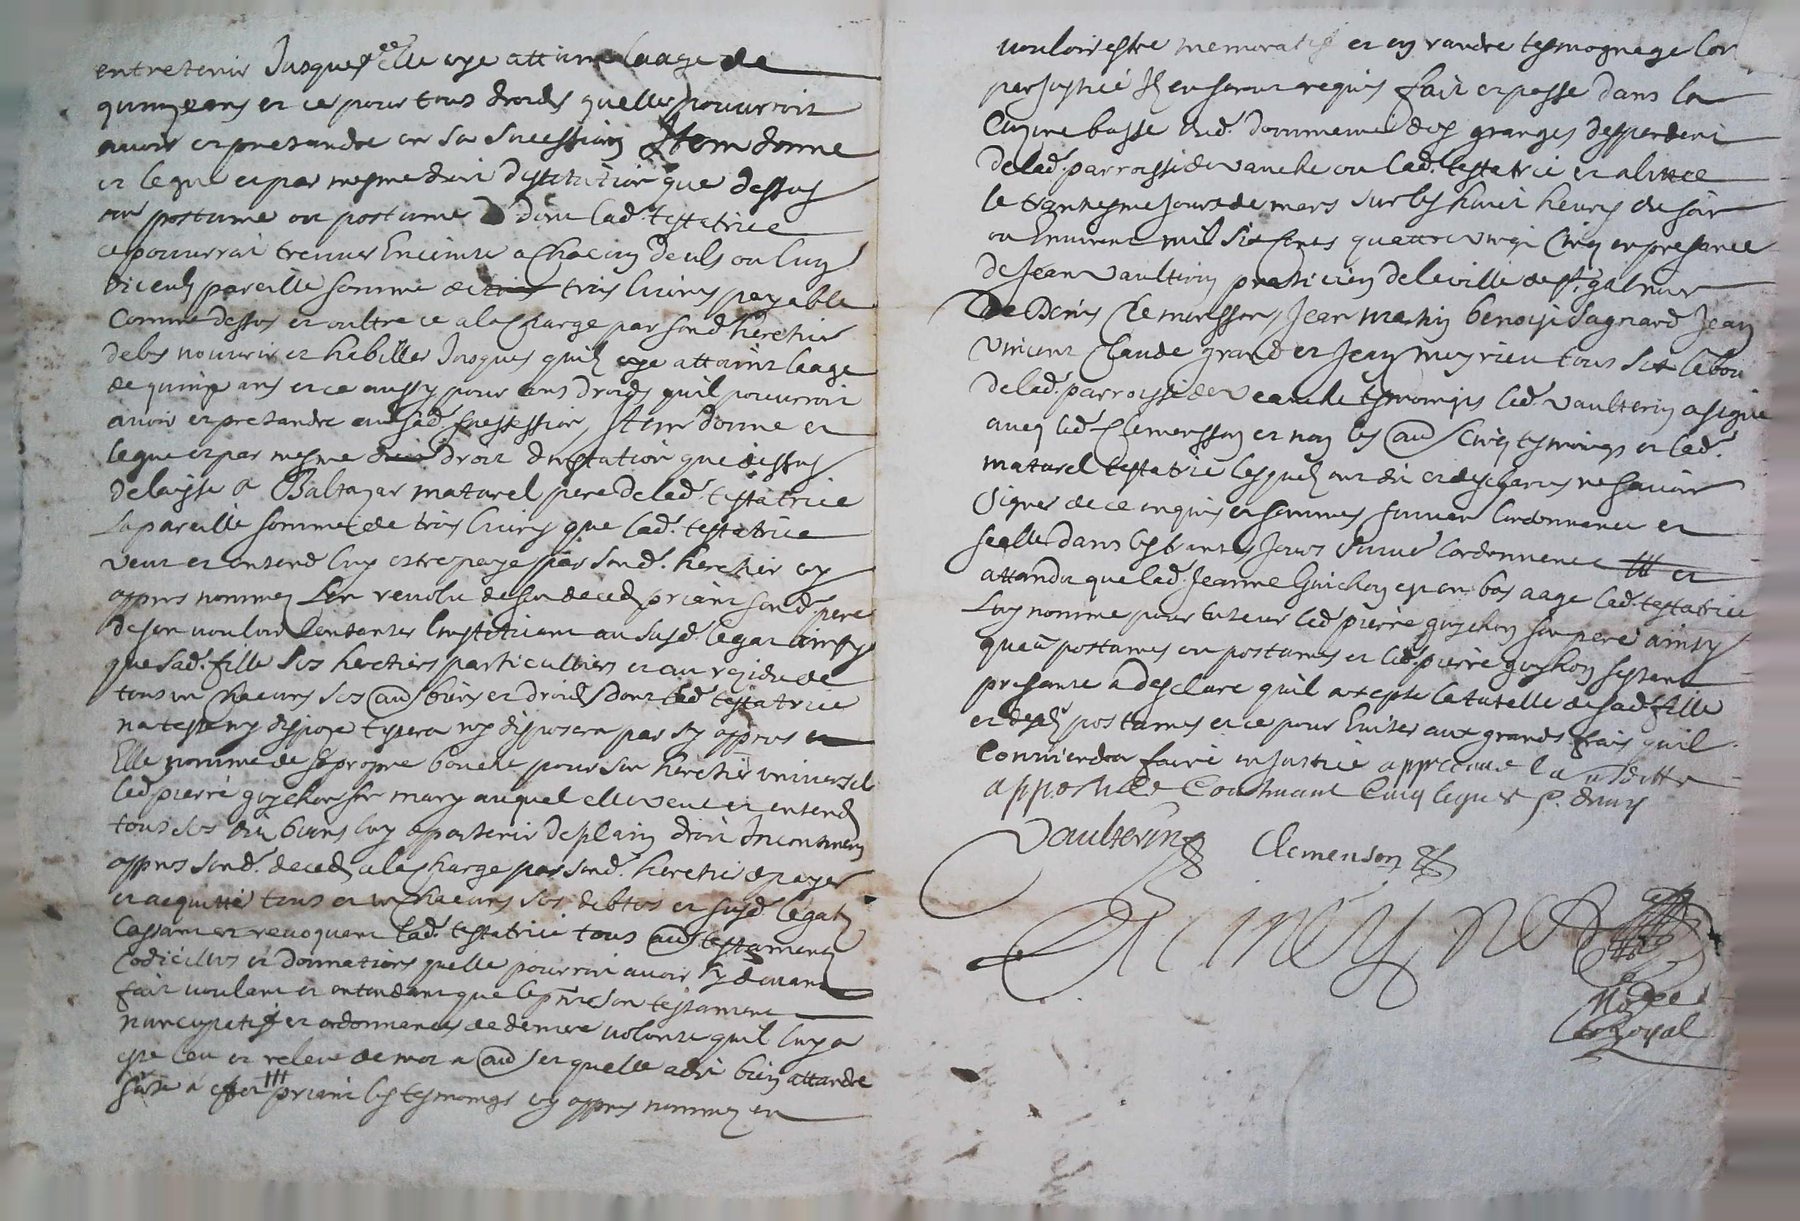 entretenir Jusques elle aye attaint laage de
quinze ans et ce pour tous droicts quelle pouurroit
auoir et pretandre en sa sucession Item donne
et legue et par mesme droit dystitution que dessus
au postume ou postumes dont lad. testatrice
ce pourrait treuuer Enceinte a Chacun deuls ou luy
diceuls pareille somme de trois liures payable
Comme dessus et oultre ce a la Charge par sond. heretier
de les nourrir et habiller Jusques quils aye attaint leage
de quinze ans et ce aussy pour tous droicts quil pouurroit
auoir et pretandre en sad. suession, Item donne et
legue et par mesme droit dinstitution que dessus
delaisse a Baltazar maturel pere de lad. testatrice
la pareille somme de trois liures que lad. testatrice
veut et entend luy estre paye par sond. heretier cy
appres nommez Lan reuolu de son deced priant sond. pere
de son vouloir Contanter Instituant au susd. legat ainsy
que sad. fille ses heretiers particulliers et au residu de
tous un Chacuns ses aud biens et droicts dont lad. testatrice
na teste ny dispose testera ny disposera par sy appres
Elle nomme de sa propre bouche pour son heretier vniuersel
led. pierre guychon son mary auquel elle veut et entend
tous ses dis biens luy appartenir de plain droit Incontinan
appres sond. deced a la Charge par sond. heretie de payer
et acquitte tous et un chacuns ses debtes et susd. legats
Cassant et reuoquant lad. testatrice tous aud testament
Codicilles et donnations quelle pourroit auoir sy deuant
fait voulant et entendant que le pnt soit son testament
nuncupatif et ordonnances de derniere volonte quil luy a
este leu et releu de mot a aud et quelle a dit bien attandre
priant les tesmoings cy appres nommez en
vouloir estre memoratifs et en randre tesmognage lor
par Justice Ils en seront requis fait et passe dans la
Cuzine basse dud. dommeine des granges despendent
de lad. parroisse de veauche ou lad. testatrice et alittee
le trantiesme Jour de mars sur les huict heures du soir
ou Enuiron mil six sents quattre vingt Cinq en presance
de Jean vaulterin praticien de la ville de St galmier
de Denis Clemensson, Jean martin benoist sagnard Jean
vincent Claude grand et Jean meyrieu tous six labou
de lad. parroisse de veauche tesmoings led. vaulterin a signe
auec led. Clemensson et non les aud Cinq tesmoings et lad.
maturel testatrice lesquels ont dit et desclares ne sauoir
signer de ce enquis et sommes suiuant lordonnance et
scelle dans les jours suiuant lordonnance et
attandu que lad. Jeanne Guichon est en bas aage lad. testatrice
luy nomme pour tuteur led. pierre guychon son pere ainsy
que postumes ou postumes et led. pierre guychon
presante a desclare quil accepte la tutelle de sad. fille
et desd. postumes et ce pour Euiter aux grands frais quil
Conuiendra faire en Justice approuue la
appostille
Vaulterin Clemenson
Grimeyne
Nore
Royal